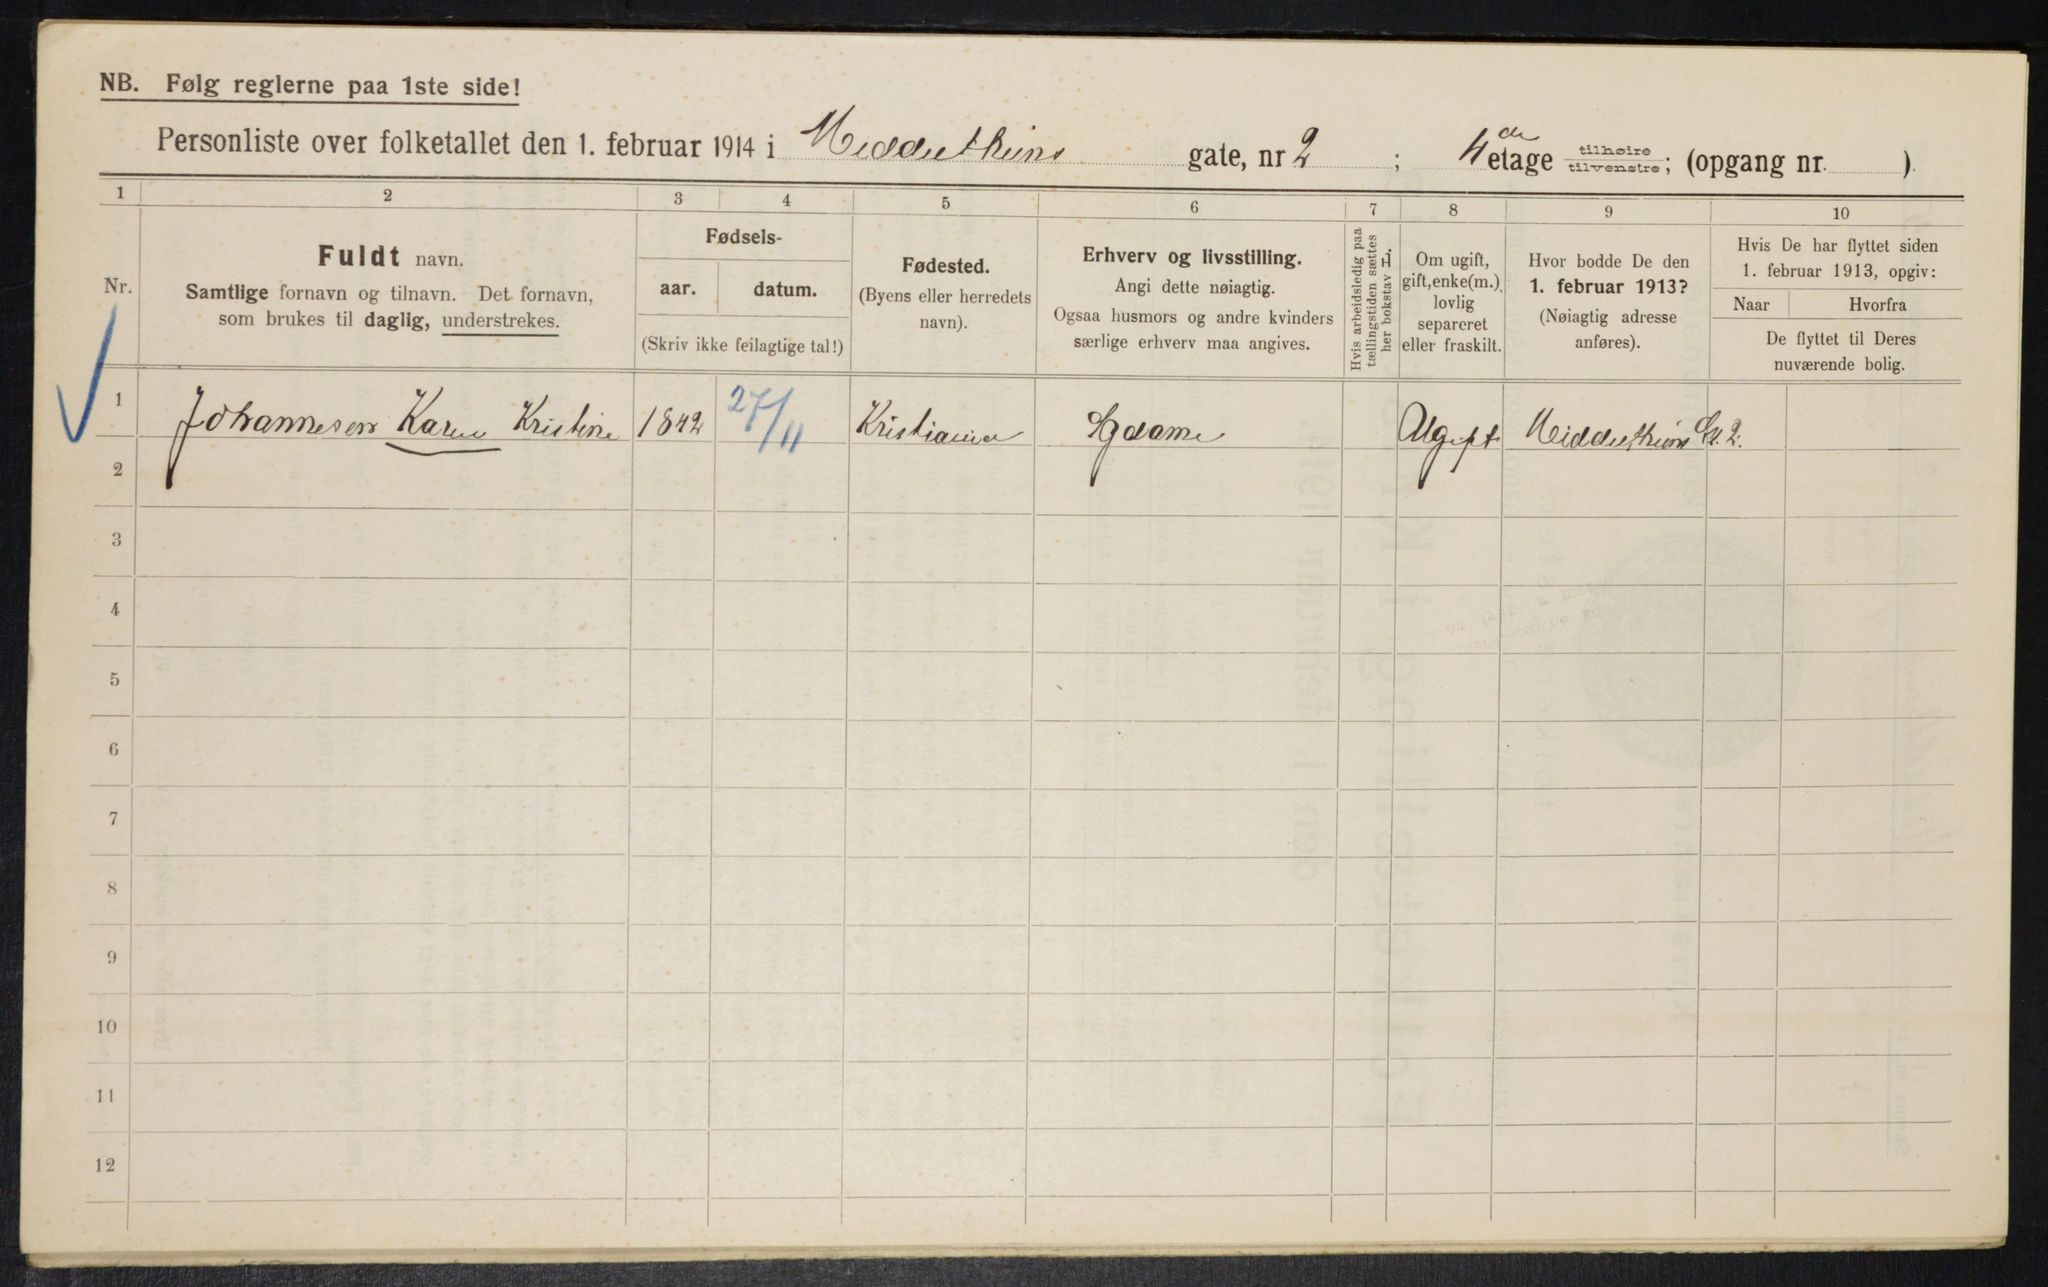 NB. Følg reglerne paa 1ste side!
Personliste over folketallet den 1. februar 1914 i Middelthuns gate, nr 2 ; 4de etage tilhøire tilvenstre; (opgang nr. ).
1 2 3 4 5 6 7 8 9 10
Nr.
Fuldt navn.
Samtlige fornavn og tilnavn. Det fornavn,
som brukes til daglig, understrekes.
Fødsels-
aar. datum.
(Skriv ikke feilagtige tal!)
Fødested.
(Byens eller herredets
navn).
Erhverv og livsstilling.
Angi dette nøiagtig.
Ogsaa husmors og andre kvinders
særlige erhverv maa angives.
Hvis arbeidsledig paa
tællingstiden sættes
her bokstav L.
Om ugift,
gift, enke(m.),
lovlig
separeret
eller fraskilt.
Hvor bodde De den
1. februar 1913?
(Nøiagtig adresse
anføres).
Hvis De har flyttet siden
1. februar 1913, opgiv:
Naar Hvorfra
De flyttet til Deres
nuværende bolig.
1 Johannesen Karen Kristine 1842 27/11 Kristiania Ugift Middelthuns Gt. 2.
2
3
4
5
6
7
8
9
10
11
12